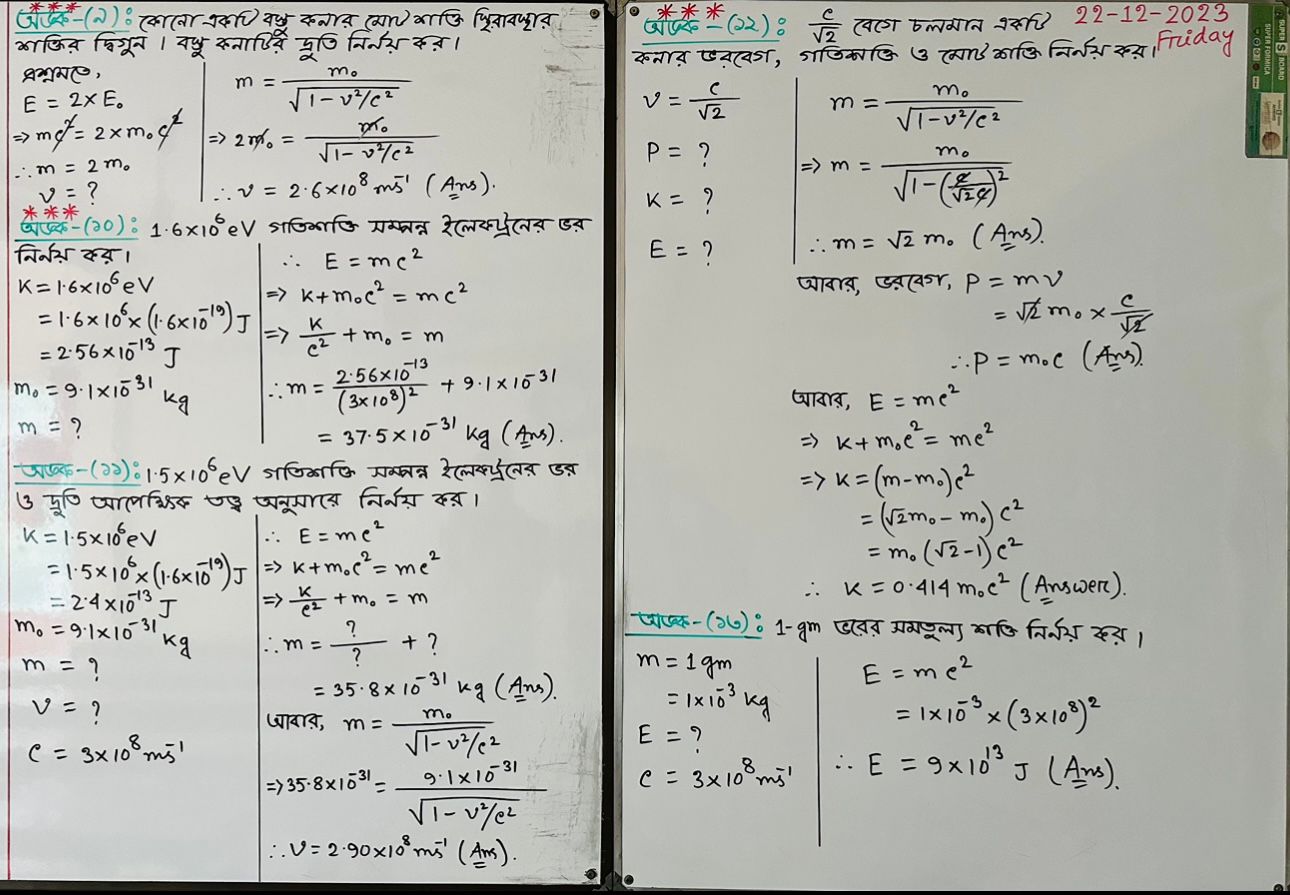 অংক-(৯): কোনো একটি বস্তু কনার মোট শক্তি স্থিরাবস্থার
শক্তির দ্বিগুন। বস্তু কনাটির দ্রুতি নির্নয় কর।
প্রশ্নমতে,
E = 2×E₀
=> mc² = 2×m₀c²
∴ m = 2m₀
v = ?
m = m₀/√(1 - v²/c²)
=> 2m₀ = m₀/√(1 - v²/c²)
∴ v = 2.6×10⁸ ms⁻¹ (Ans).
অংক-(১০): 1.6×10⁶ eV গতিশক্তি সম্পন্ন ইলেকট্রনের ভর
নির্নয় কর।
K = 1.6×10⁶ eV
= 1.6×10⁶×(1.6×10⁻¹⁹) J
= 2.56×10⁻¹³ J
m₀ = 9.1×10⁻³¹ kg
m = ?
∴ E = mc²
=> K + m₀c² = mc²
=> K/c² + m₀ = m
∴ m = 2.56×10⁻¹³/(3×10⁸)² + 9.1×10⁻³¹
= 37.5×10⁻³¹ kg (Ans).
অংক-(১১): 1.5×10⁶ eV গতিশক্তি সম্পন্ন ইলেকট্রনের ভর
ও দ্রুতি আপেক্ষিক তত্ত্ব অনুসারে নির্নয় কর।
K = 1.5×10⁶ eV
= 1.5×10⁶×(1.6×10⁻¹⁹) J
= 2.4×10⁻¹³ J
m₀ = 9.1×10⁻³¹ kg
m = ?
v = ?
c = 3×10⁸ ms⁻¹
∴ E = mc²
=> K + m₀c² = mc²
=> K/c² + m₀ = m
∴ m = ?/? + ?
= 35.8×10⁻³¹ kg (Ans).
আবার, m = m₀/√(1 - v²/c²)
=> 35.8×10⁻³¹ = 9.1×10⁻³¹/√(1 - v²/c²)
∴ v = 2.90×10⁸ ms⁻¹ (Ans).
22-12-2023
Friday
অংক-(১২): c/√2 বেগে চলমান একটি
কনার ভরবেগ, গতিশক্তি ও মোট শক্তি নির্নয় কর।
v = c/√2
P = ?
K = ?
E = ?
m = m₀/√(1 - v²/c²)
=> m = m₀/√(1 - (c/√2c)²)
∴ m = √2 m₀ (Ans).
আবার, ভরবেগ, P = mv
= √2 m₀ × c/√2
∴ P = m₀c (Ans).
আবার, E = mc²
=> K + m₀c² = mc²
=> K = (m - m₀)c²
= (√2m₀ - m₀) c²
= m₀(√2 - 1)c²
∴ K = 0.414 m₀c² (Answer).
অংক-(১৩): 1-gm ভরের সমতুল্য শক্তি নির্নয় কর।
m = 1 gm
= 1×10⁻³ kg
E = ?
c = 3×10⁸ ms⁻¹
E = mc²
= 1×10⁻³×(3×10⁸)²
∴ E = 9×10¹³ J (Ans).